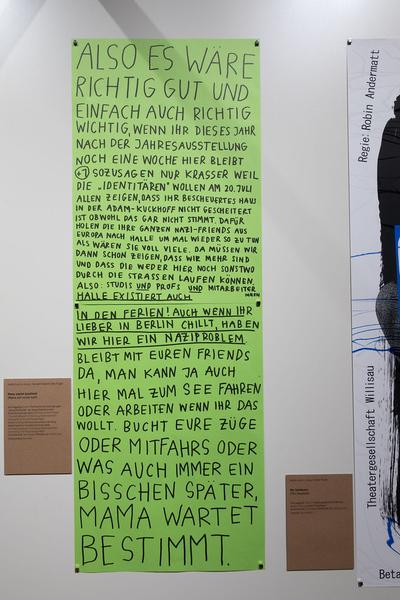 ALSO ES WÄRE
RICHTIG GUT UND
EINFACH AUCH RICHTIG
WICHTIG, WENN IHR DIESES JAHR
NACH DER JAHRESAUSSTELLUNG
NOCH EINE WOCHE HIER BLEIBT
+1 SOZUSAGEN NUR KRASSER WEIL
DIE „IDENTITÄREN" WOLLEN AM 20. JULI
ALLEN ZEIGEN, DASS IHR BESCHEUERTES HAUS
IN DER ADAM-KUCKHOFF NICHT GESCHEITERT
IST OBWOHL DAS GAR NICHT STIMMT. DAFÜR
HOLEN DIE IHRE GANZEN NAZI-FRIENDS AUS
EUROPA NACH HALLE UM MAL WIEDER SO ZU TUN
ALS WÄREN SIE VOLL VIELE. DA MÜSSEN WIR
DANN SCHON ZEIGEN, DASS WIR MEHR SIND
UND DASS DIE WEDER HIER NOCH SONSTWO
DURCH DIE STRASSEN LAUFEN KÖNNEN.
ALSO: STUDIS UND PROFS UND MITARBEITER
INNEN
HALLE EXISTIERT AUCH
IN DEN FERIEN! AUCH WENN IHR
LIEBER IN BERLIN CHILLT, HABEN
WIR HIER EIN NAZIPROBLEM.
BLEIBT MIT EUREN FRIENDS
DA, MAN KANN JA AUCH
HIER MAL ZUM SEE FAHREN
ODER ARBEITEN WENN IHR DAS
WOLLT. BUCHT EURE ZÜGE
ODER MITFAHRS ODER
WAS AUCH IMMER EIN
BISSCHEN SPÄTER,
MAMA WARTET
BESTIMMT.
Regie: Robin Andermatt
Theatergesellschaft Willisau
Beta